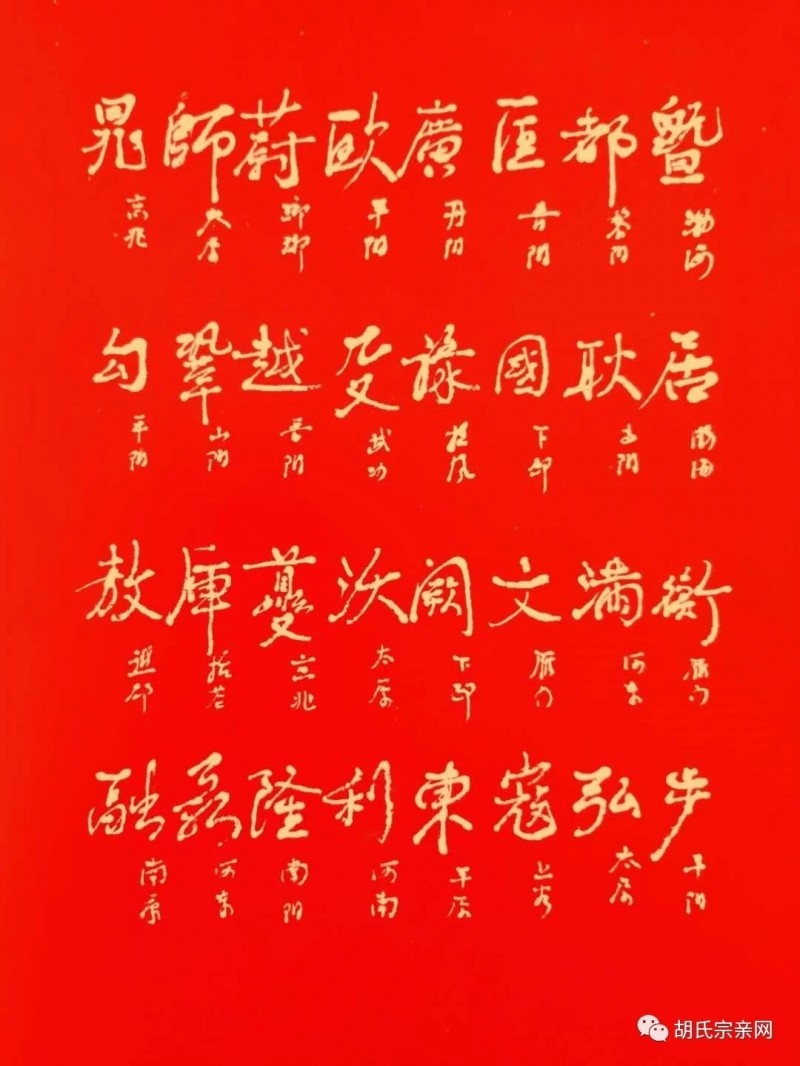 暨
渤海
居
渤海
衡
雁门
步
平阳
都
黎阳
耿
高阳
满
河东
弘
太原
匡
晋阳
國
下邳
文
雁门
寇
上谷
廣
丹阳
禄
扶风
阙
下邳
東
平原
欧
平阳
殳
武功
沃
太原
利
河南
蔚
琅琊
越
晋阳
夔
京兆
隆
南阳
師
太原
鞏
山阳
庫
括苍
聂
河东
晁
京兆
勾
平阳
敖
谯郡
融
南康
胡氏宗亲网